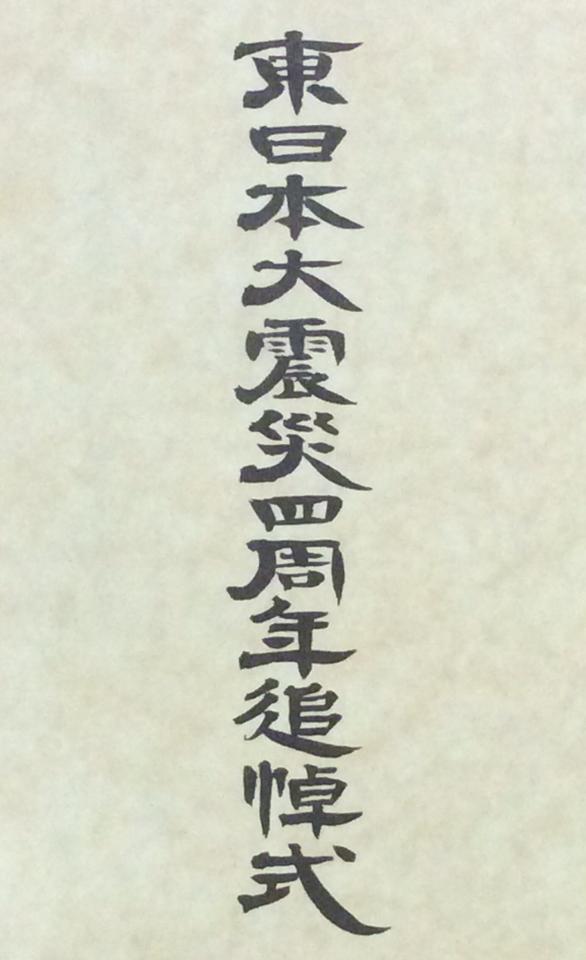 東日本大震災四周年追悼式